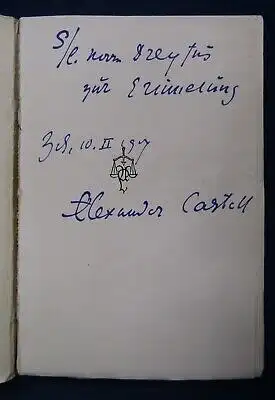 S/l. Herrn Dreyfus
zur Erinnerung
10. II
Alexander Castell